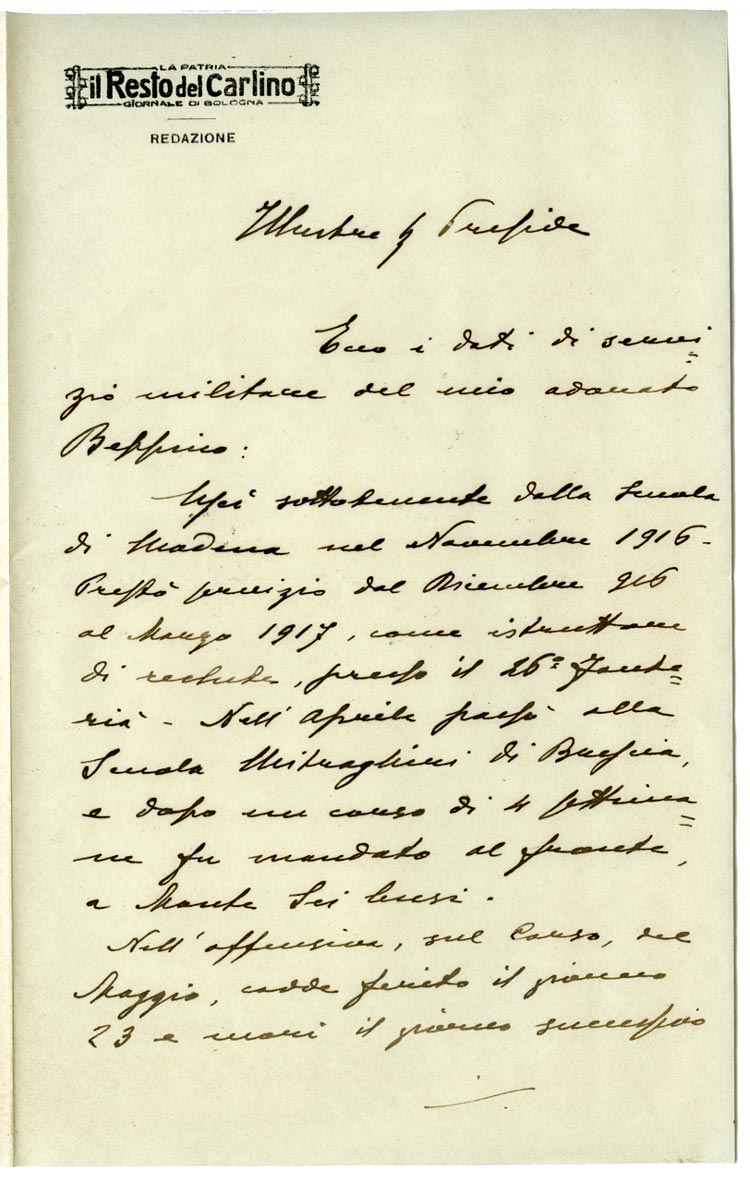 LA PATRIA
il Resto del Carlino
GIORNALE DI BOLOGNA
REDAZIONE
Illustre Sig Preside
Ecco i dati di servi=
zio militare del mio adorato
Beppino:
Uscì sottotenente dalla Scuola
di Modena nel Novembre 1916 -
Prestò servizio dal Dicembre 916
al Marzo 1917, come istruttore
di reclute, presso il 26º Fante=
ria - Nell' Aprile passò alla
Scuola Mitraglieri di Brescia,
e dopo un corso di 4 settima=
ne fu mandato al fronte,
a Monte Sei busi.
Nell' offensiva, sul Carso, del
Maggio, cadde ferito il giorno
23 e morì il giorno successivo